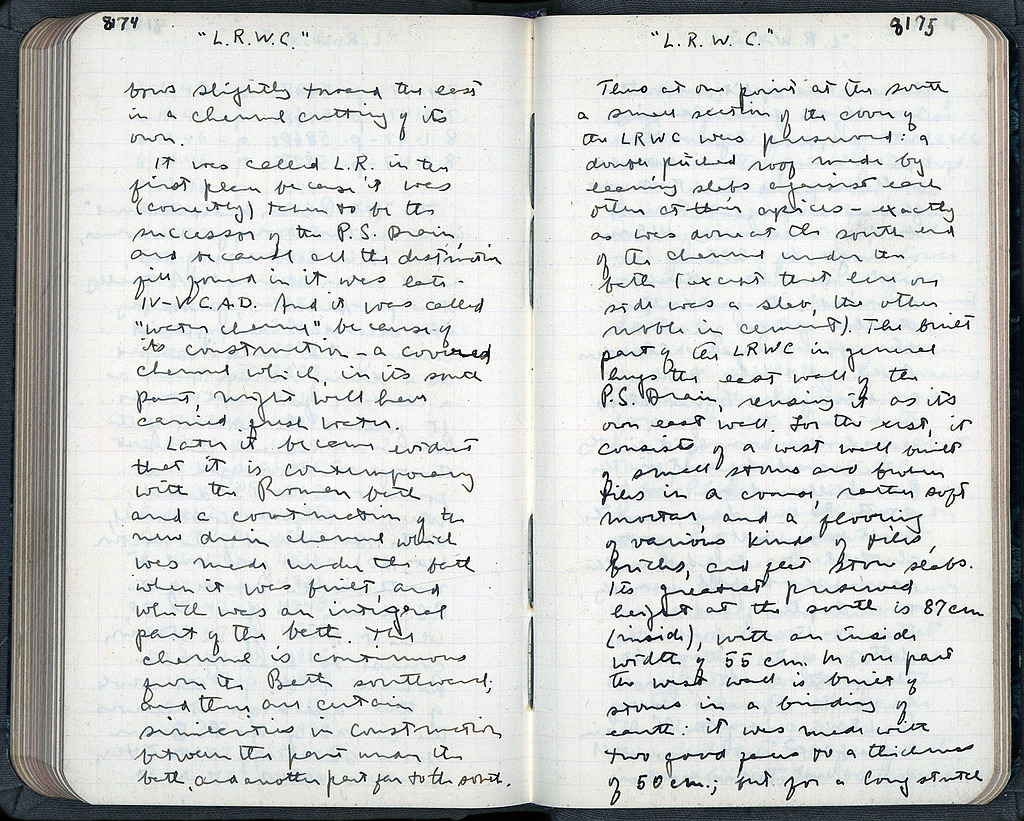 8174
"L.R.W.C."
bows slightly toward the east
in a channel cutting of its
own.
It was called L.R. in the
first place because it was
(correctly) taken to be the
successor of the P.S. Drain,
and because all the distinctive
fill found in it was late -
IV-V C. A.D. And it was called
"water channel" because of
its construction - a covered
channel which, in its south
part, might well have
carried fresh water.
Later it became evident
that it is contemporary
with the Roman bath
and a continuation of the
new drain channel which
was made under the bath
when it was built, and
which was an integral
part of the bath. The
channel is continuous
from the Bath southward;
and there are certain
similarities in construction
between the part under the
bath, and another part far to the south.
8175
"L.R.W.C."
Thus at one point at the south
a small section of the cover of
the LRWC was preserved: a
double pitched roof made by
leaning slabs against each
other at their apices - exactly
as was done at the south end
of the channel under the
bath (except that here one
side was a slab, the other
rubble in cement). The built
part of the LRWC in general
hugs the east wall of the
P.S. Drain, reusing it as its
own east wall. For the rest, it
consists of a west wall built
of small stones and broken
tiles in a coarse, rather soft
mortar, and a flooring
of various kinds of tiles,
bricks, and flat stone slabs.
Its greatest preserved
height at the south is 87 cm
(inside), with an inside
width of 55 cm. In one part
the west wall is built of
stones in a binding of
earth: it was made with
two good faces to a thickness
of 50 cm.; but for a long stretch